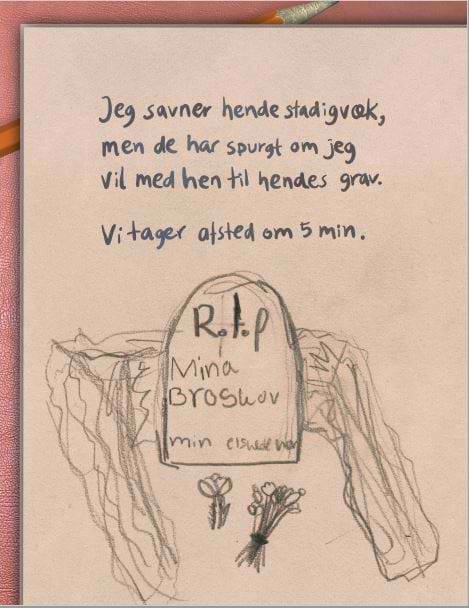 Jeg savner hende stadigvæk,
men de har spurgt om jeg
vil med hen til hendes grav.
Vi tager afsted om 5 min.
R.I.P
Mina
Broskov
min elskede